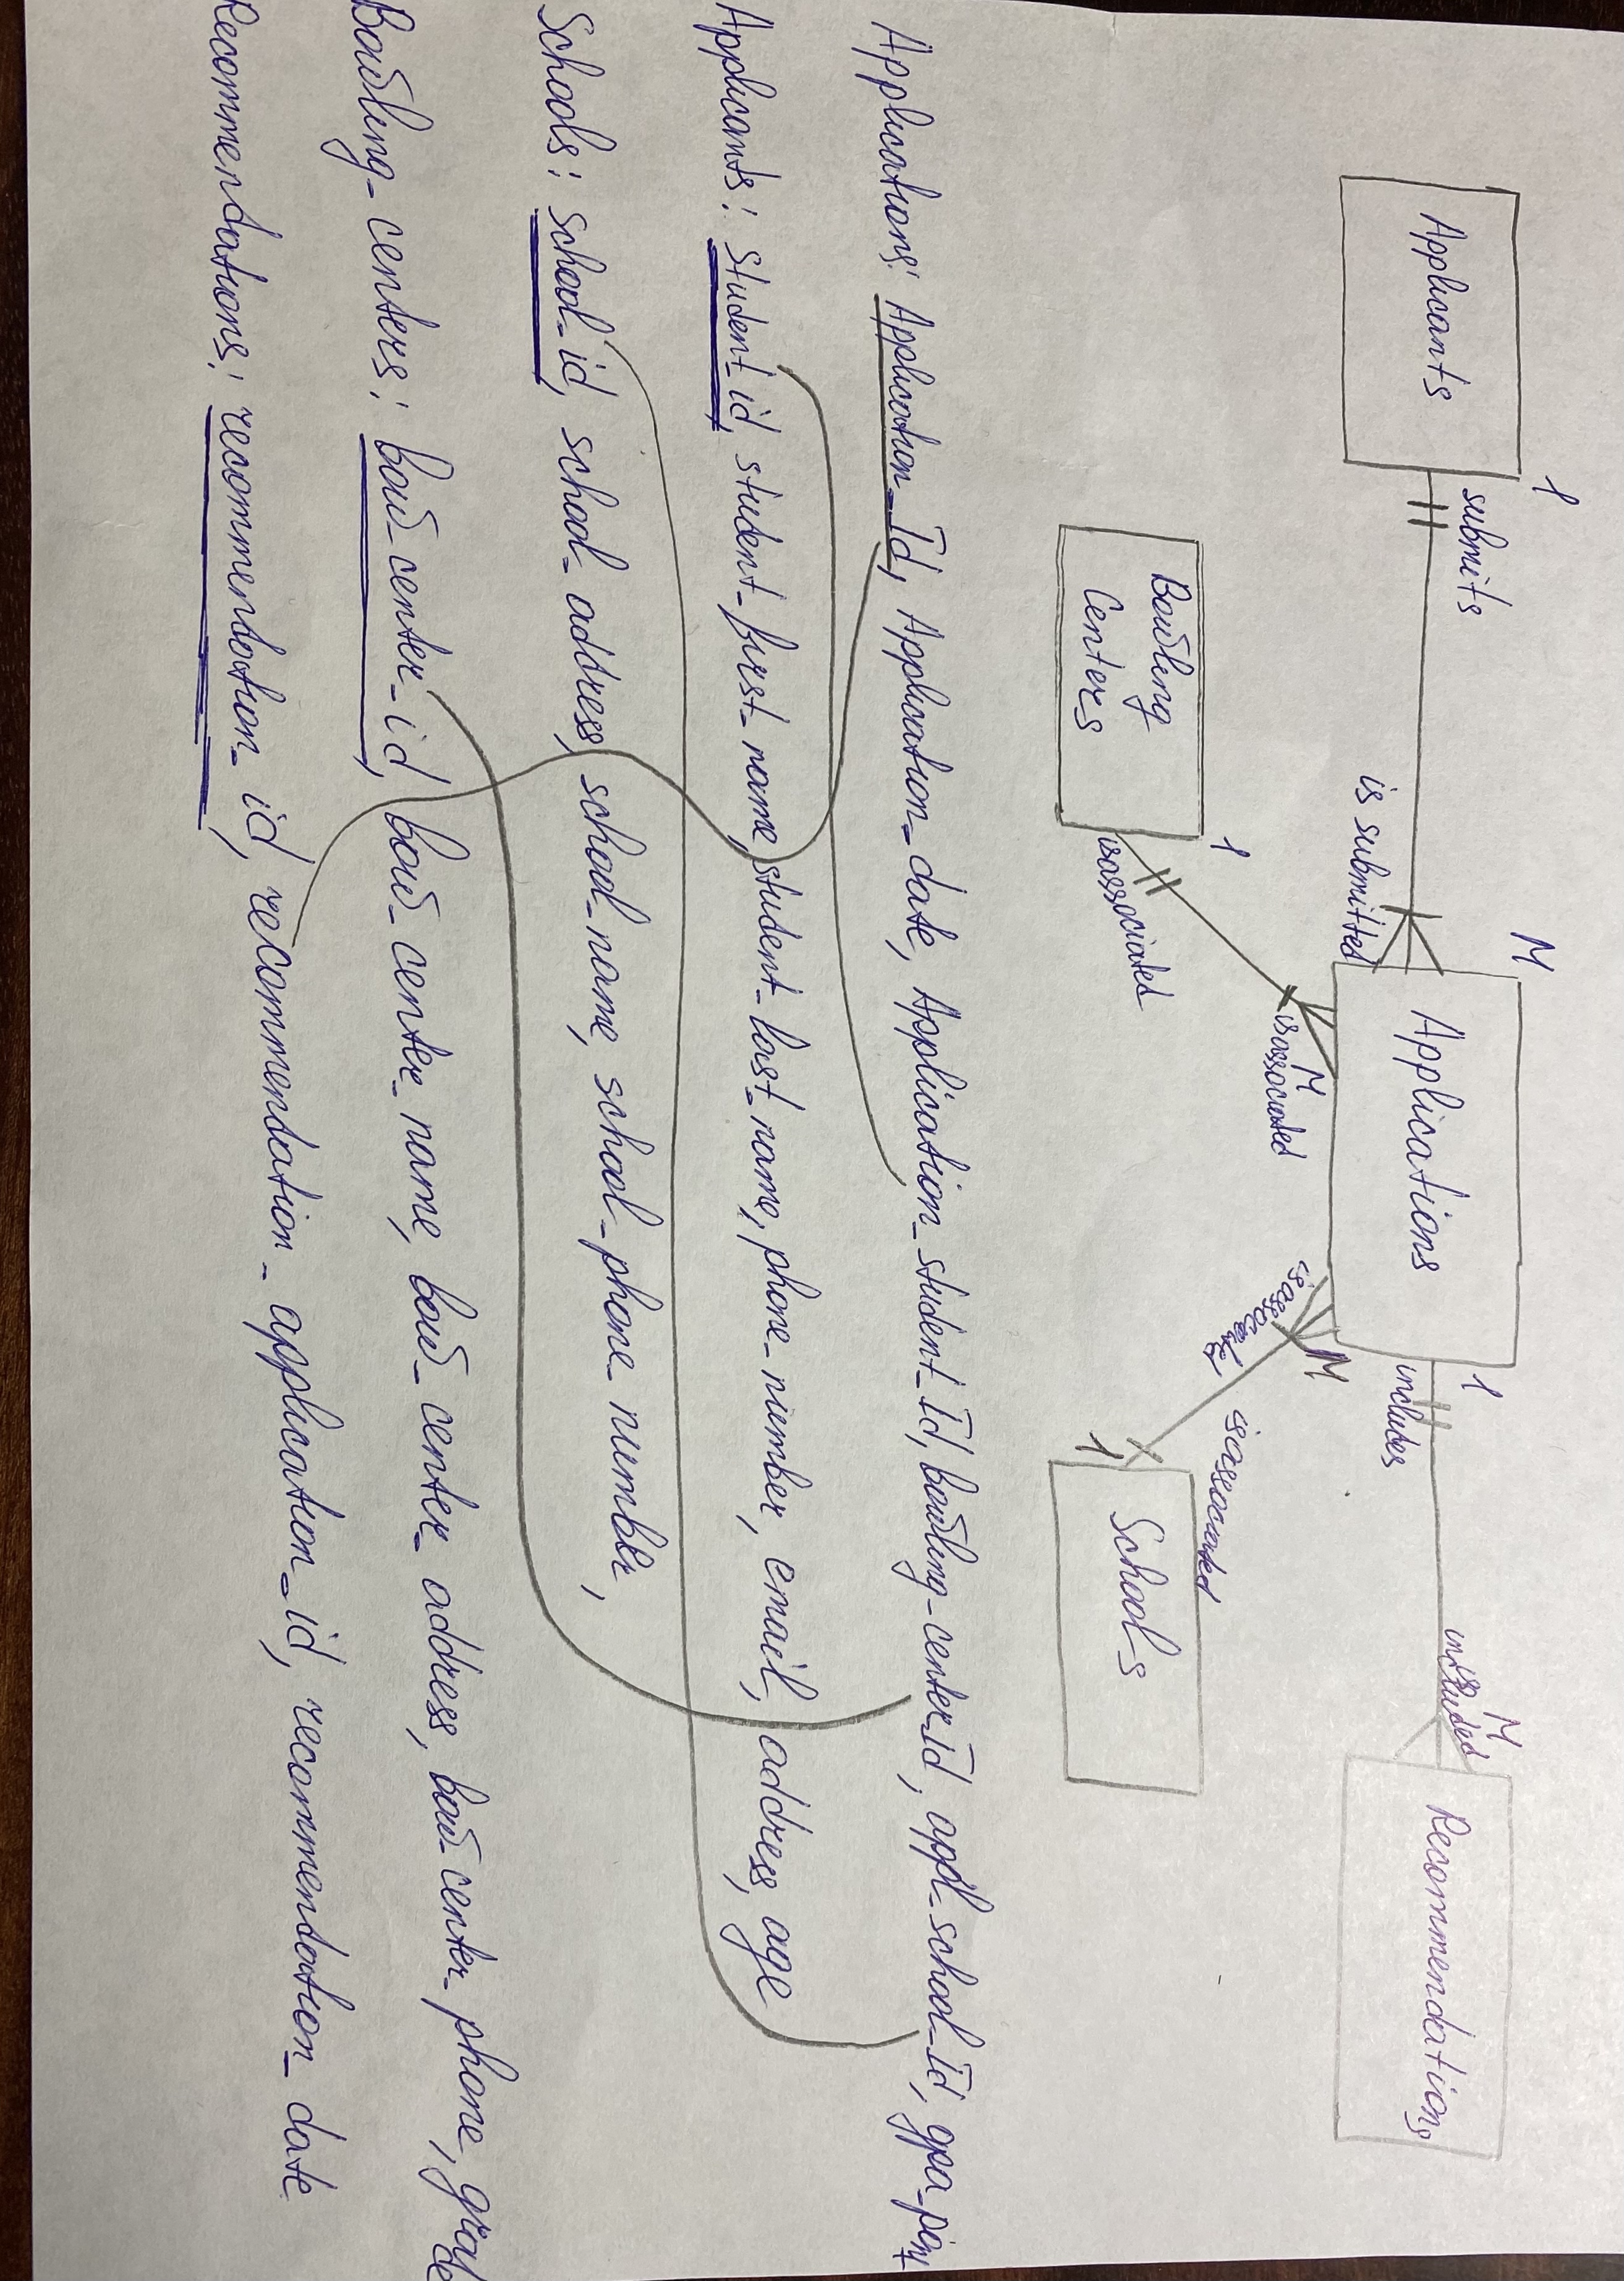 1
M
1
M
Applicants
submits
is submitted
Applications
includes
is included
Recommendations
Bowling
Centers
1
is associated
M
is associated
M
is associated
is associated
1
Schools
Applications: Application_Id, Application_date, Application_student_Id, bowling_center_Id, appl_school_Id, gpa_point
Applicants: student_id, student_first_name, student_last_name, phone_number, email, address, age
Schools: school_id, school_address, school_name, school_phone_number,
Bowling_centers: bowl_center_id, bowl_center_name, bowl_center_address, bowl_center_phone, grade
Recommendations: recommendation_id, recommendation_application_id, recommendation_date